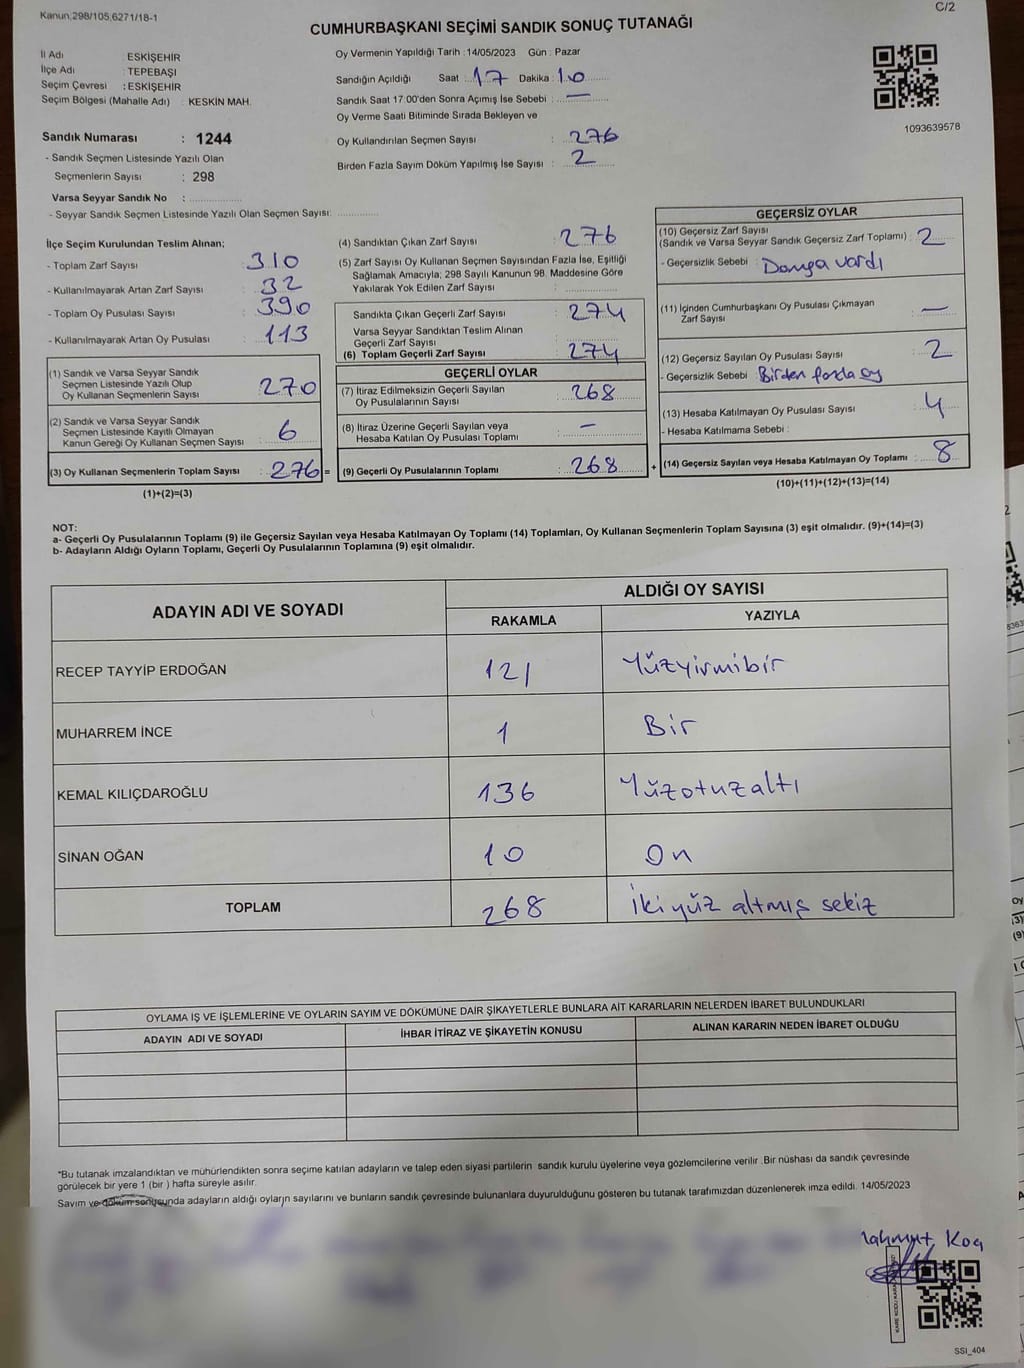 Kanun;298/105,6271/18-1
C/2
CUMHURBAŞKANI SEÇİMİ SANDIK SONUÇ TUTANAĞI
İl Adı ESKİŞEHİR
İlçe Adı : TEPEBAŞI
Seçim Çevresi : ESKİŞEHİR
Seçim Bölgesi (Mahalle Adı) : KESKİN MAH.
Sandık Numarası : 1244
- Sandık Seçmen Listesinde Yazılı Olan
Seçmenlerin Sayısı : 298
Varsa Seyyar Sandık No :
- Seyyar Sandık Seçmen Listesinde Yazılı Olan Seçmen Sayısı:
Oy Vermenin Yapıldığı Tarih :14/05/2023 Gün : Pazar
Sandığın Açıldığı Saat : 17 Dakika : 10
Sandık Saat 17.00'den Sonra Açımış İse Sebebi : —
Oy Verme Saati Bitiminde Sırada Bekleyen ve
Oy Kullandırılan Seçmen Sayısı : 276
Birden Fazla Sayım Döküm Yapılmış İse Sayısı : 2
1093639578
İlçe Seçim Kurulundan Teslim Alınan;
- Toplam Zarf Sayısı : 310
- Kullanılmayarak Artan Zarf Sayısı : 32
- Toplam Oy Pusulası Sayısı : 390
- Kullanılmayarak Artan Oy Pusulası : 113
(1) Sandık ve Varsa Seyyar Sandık
Seçmen Listesinde Yazılı Olup
Oy Kullanan Seçmenlerin Sayısı : 270
(2) Sandık ve Varsa Seyyar Sandık
Seçmen Listesinde Kayıtlı Olmayan
Kanun Gereği Oy Kullanan Seçmen Sayısı : 6
(3) Oy Kullanan Seçmenlerin Toplam Sayısı : 276 =
(1)+(2)=(3)
(4) Sandıktan Çıkan Zarf Sayısı : 276
(5) Zarf Sayısı Oy Kullanan Seçmen Sayısından Fazla İse, Eşitliği
Sağlamak Amacıyla; 298 Sayılı Kanunun 98. Maddesine Göre
Yakılarak Yok Edilen Zarf Sayısı :
Sandıkta Çıkan Geçerli Zarf Sayısı : 274
Varsa Seyyar Sandıktan Teslim Alınan
Geçerli Zarf Sayısı :
(6) Toplam Geçerli Zarf Sayısı : 274
GEÇERLİ OYLAR
(7) İtiraz Edilmeksizin Geçerli Sayılan
Oy Pusulalarının Sayısı : 268
(8) İtiraz Üzerine Geçerli Sayılan veya
Hesaba Katılan Oy Pusulası Toplamı : —
(9) Geçerli Oy Pusulalarının Toplamı : 268 +
GEÇERSİZ OYLAR
(10) Geçersiz Zarf Sayısı
(Sandık ve Varsa Seyyar Sandık Geçersiz Zarf Toplamı) : 2
- Geçersizlik Sebebi : Damga vardı
(11) İçinden Cumhurbaşkanı Oy Pusulası Çıkmayan
Zarf Sayısı : —
(12) Geçersiz Sayılan Oy Pusulası Sayısı : 2
- Geçersizlik Sebebi : Birden fazla oy
(13) Hesaba Katılmayan Oy Pusulası Sayısı : 4
- Hesaba Katılmama Sebebi :
(14) Geçersiz Sayılan veya Hesaba Katılmayan Oy Toplamı : 8
(10)+(11)+(12)+(13)=(14)
NOT:
a- Geçerli Oy Pusulalarının Toplamı (9) ile Geçersiz Sayılan veya Hesaba Katılmayan Oy Toplamı (14) Toplamları, Oy Kullanan Seçmenlerin Toplam Sayısına (3) eşit olmalıdır. (9)+(14)=(3)
b- Adayların Aldığı Oyların Toplamı, Geçerli Oy Pusulalarının Toplamına (9) eşit olmalıdır.
ADAYIN ADI VE SOYADI ALDIĞI OY SAYISI
RAKAMLA YAZIYLA
RECEP TAYYİP ERDOĞAN 121 Yüzyirmibir
MUHARREM İNCE 1 Bir
KEMAL KILIÇDAROĞLU 136 Yüzotuzaltı
SİNAN OĞAN 10 On
TOPLAM 268 İkiyüz altmış sekiz
OYLAMA İŞ VE İŞLEMLERİNE VE OYLARIN SAYIM VE DÖKÜMÜNE DAİR ŞİKAYETLERLE BUNLARA AİT KARARLARIN NELERDEN İBARET BULUNDUKLARI
ADAYIN ADI VE SOYADI İHBAR İTİRAZ VE ŞİKAYETİN KONUSU ALINAN KARARIN NEDEN İBARET OLDUĞU
*Bu tutanak imzalandıktan ve mühürlendikten sonra seçime katılan adayların ve talep eden siyasi partilerin sandık kurulu üyelerine veya gözlemcilerine verilir. Bir nüshası da sandık çevresinde
görülecek bir yere 1 (bir) hafta süreyle asılır.
Sayım ve döküm sonucunda adayların aldığı oyların sayılarını ve bunların sandık çevresinde bulunanlara duyurulduğunu gösteren bu tutanak tarafımızdan düzenlenerek imza edildi. 14/05/2023
Koç
SSI_404